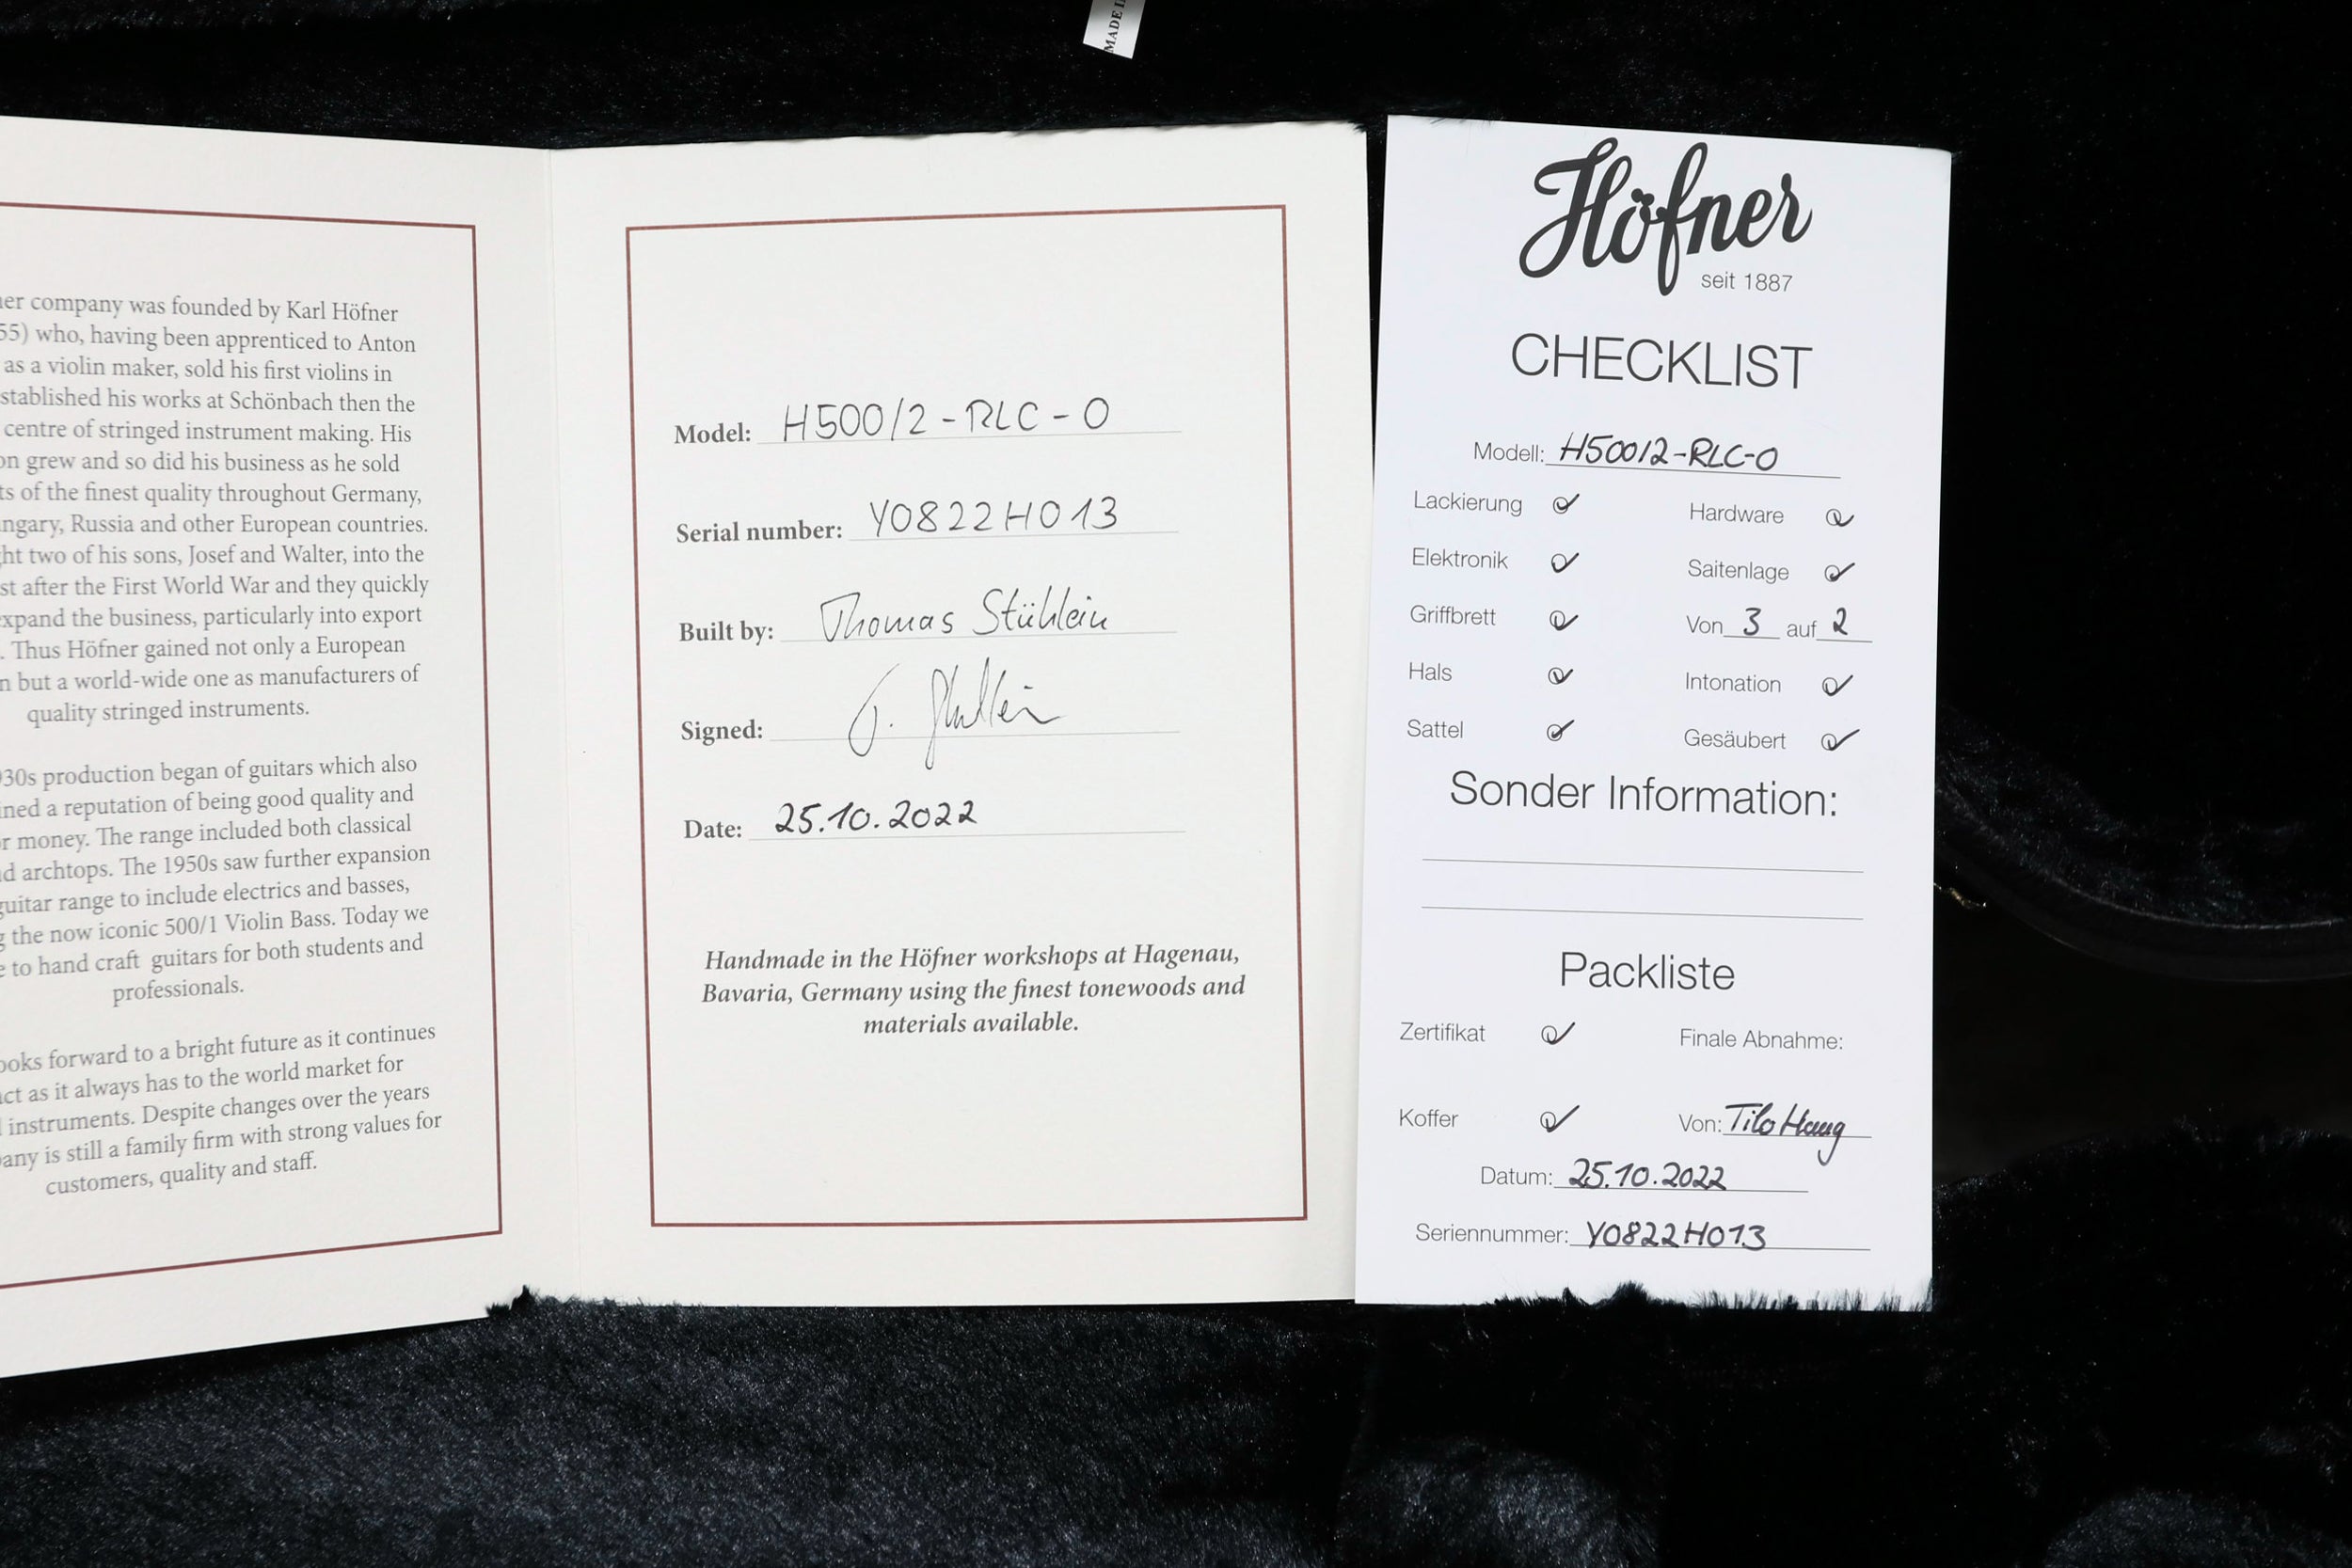 MADE
er company was founded by Karl Höfner
55) who, having been apprenticed to Anton
as a violin maker, sold his first violins in
stablished his works at Schönbach then the
centre of stringed instrument making. His
on grew and so did his business as he sold
ts of the finest quality throughout Germany,
ngary, Russia and other European countries.
ht two of his sons, Josef and Walter, into the
st after the First World War and they quickly
xpand the business, particularly into export
. Thus Höfner gained not only a European
n but a world-wide one as manufacturers of
quality stringed instruments.
30s production began of guitars which also
ined a reputation of being good quality and
r money. The range included both classical
d archtops. The 1950s saw further expansion
guitar range to include electrics and basses,
g the now iconic 500/1 Violin Bass. Today we
e to hand craft guitars for both students and
professionals.
ooks forward to a bright future as it continues
ct as it always has to the world market for
instruments. Despite changes over the years
any is still a family firm with strong values for
customers, quality and staff.
Model: H500/2-RLC-O
Serial number: Y0822H013
Built by: Thomas Stühlein
Signed: T. Stühlein
Date: 25.10.2022
Handmade in the Höfner workshops at Hagenau,
Bavaria, Germany using the finest tonewoods and
materials available.
Höfner
seit 1887
CHECKLIST
Modell: H500/2-RLC-O
Lackierung Hardware
Elektronik Saitenlage
Griffbrett Von 3 auf 2
Hals Intonation
Sattel Gesäubert
Sonder Information:
Packliste
Zertifikat Finale Abnahme:
Koffer Von: Tilo Haug
Datum: 25.10.2022
Seriennummer: Y0822H013